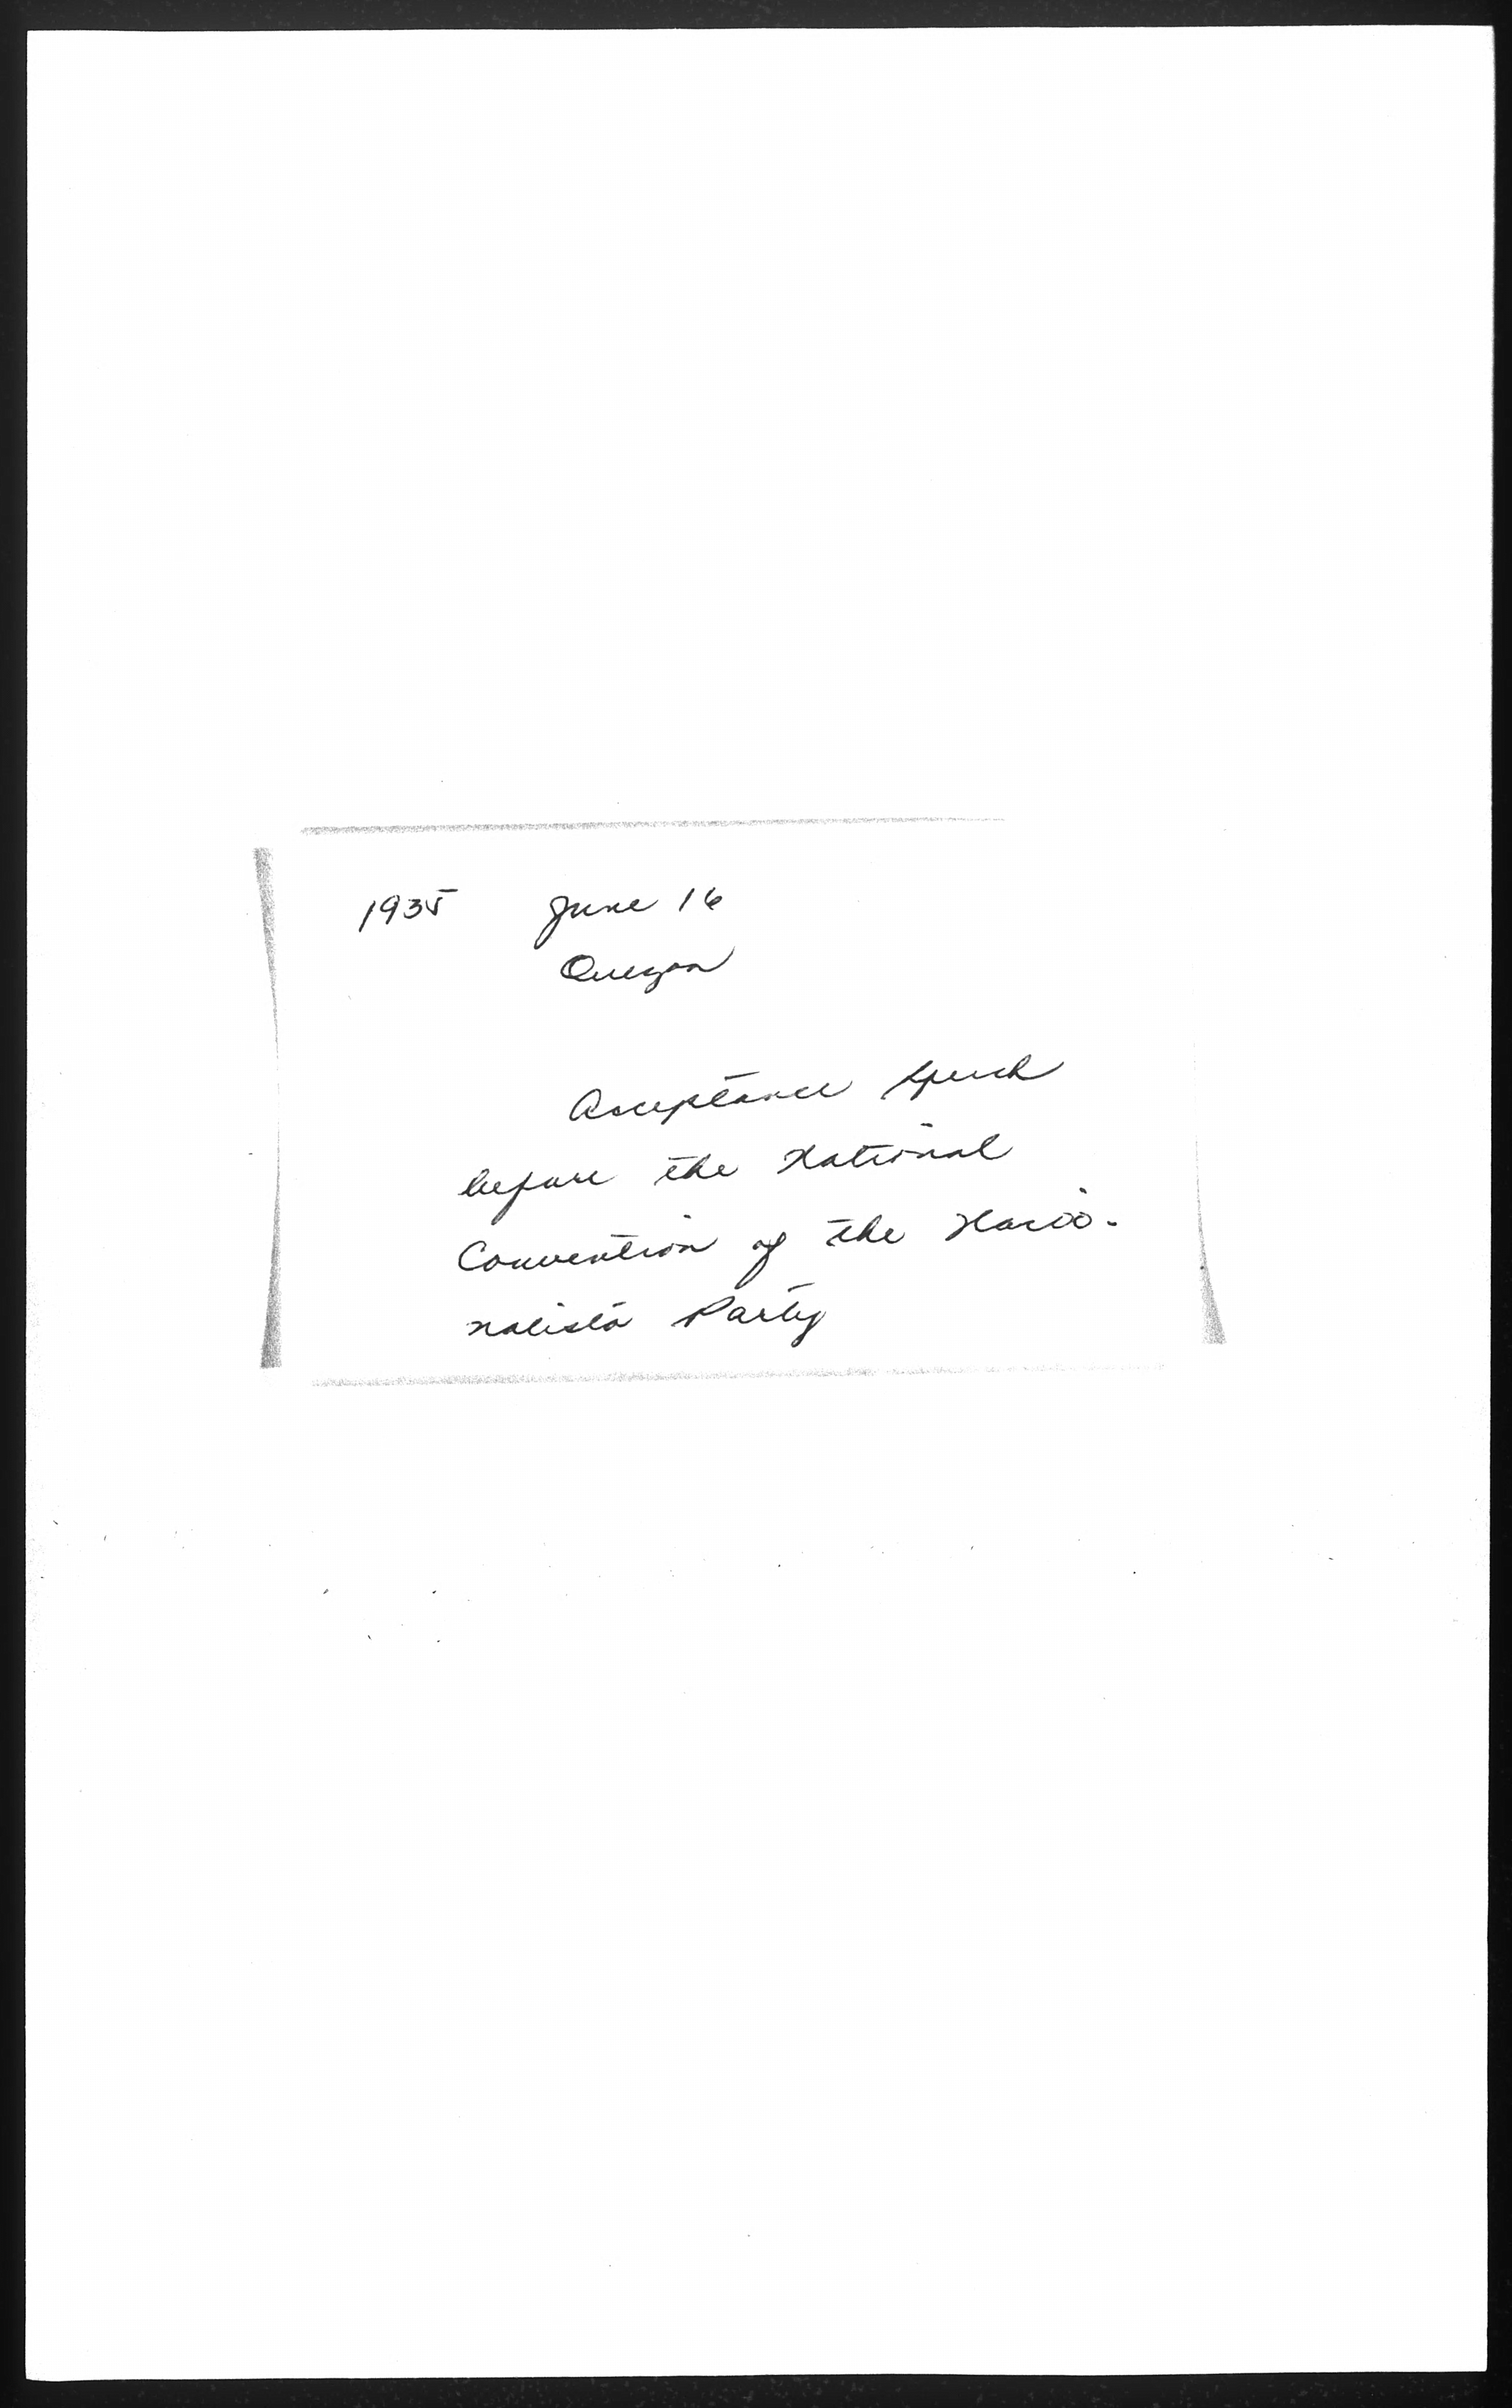 1935 June 16
Quezon
Acceptance Speech
before the National
Convention of the Nacio-
nalista Party